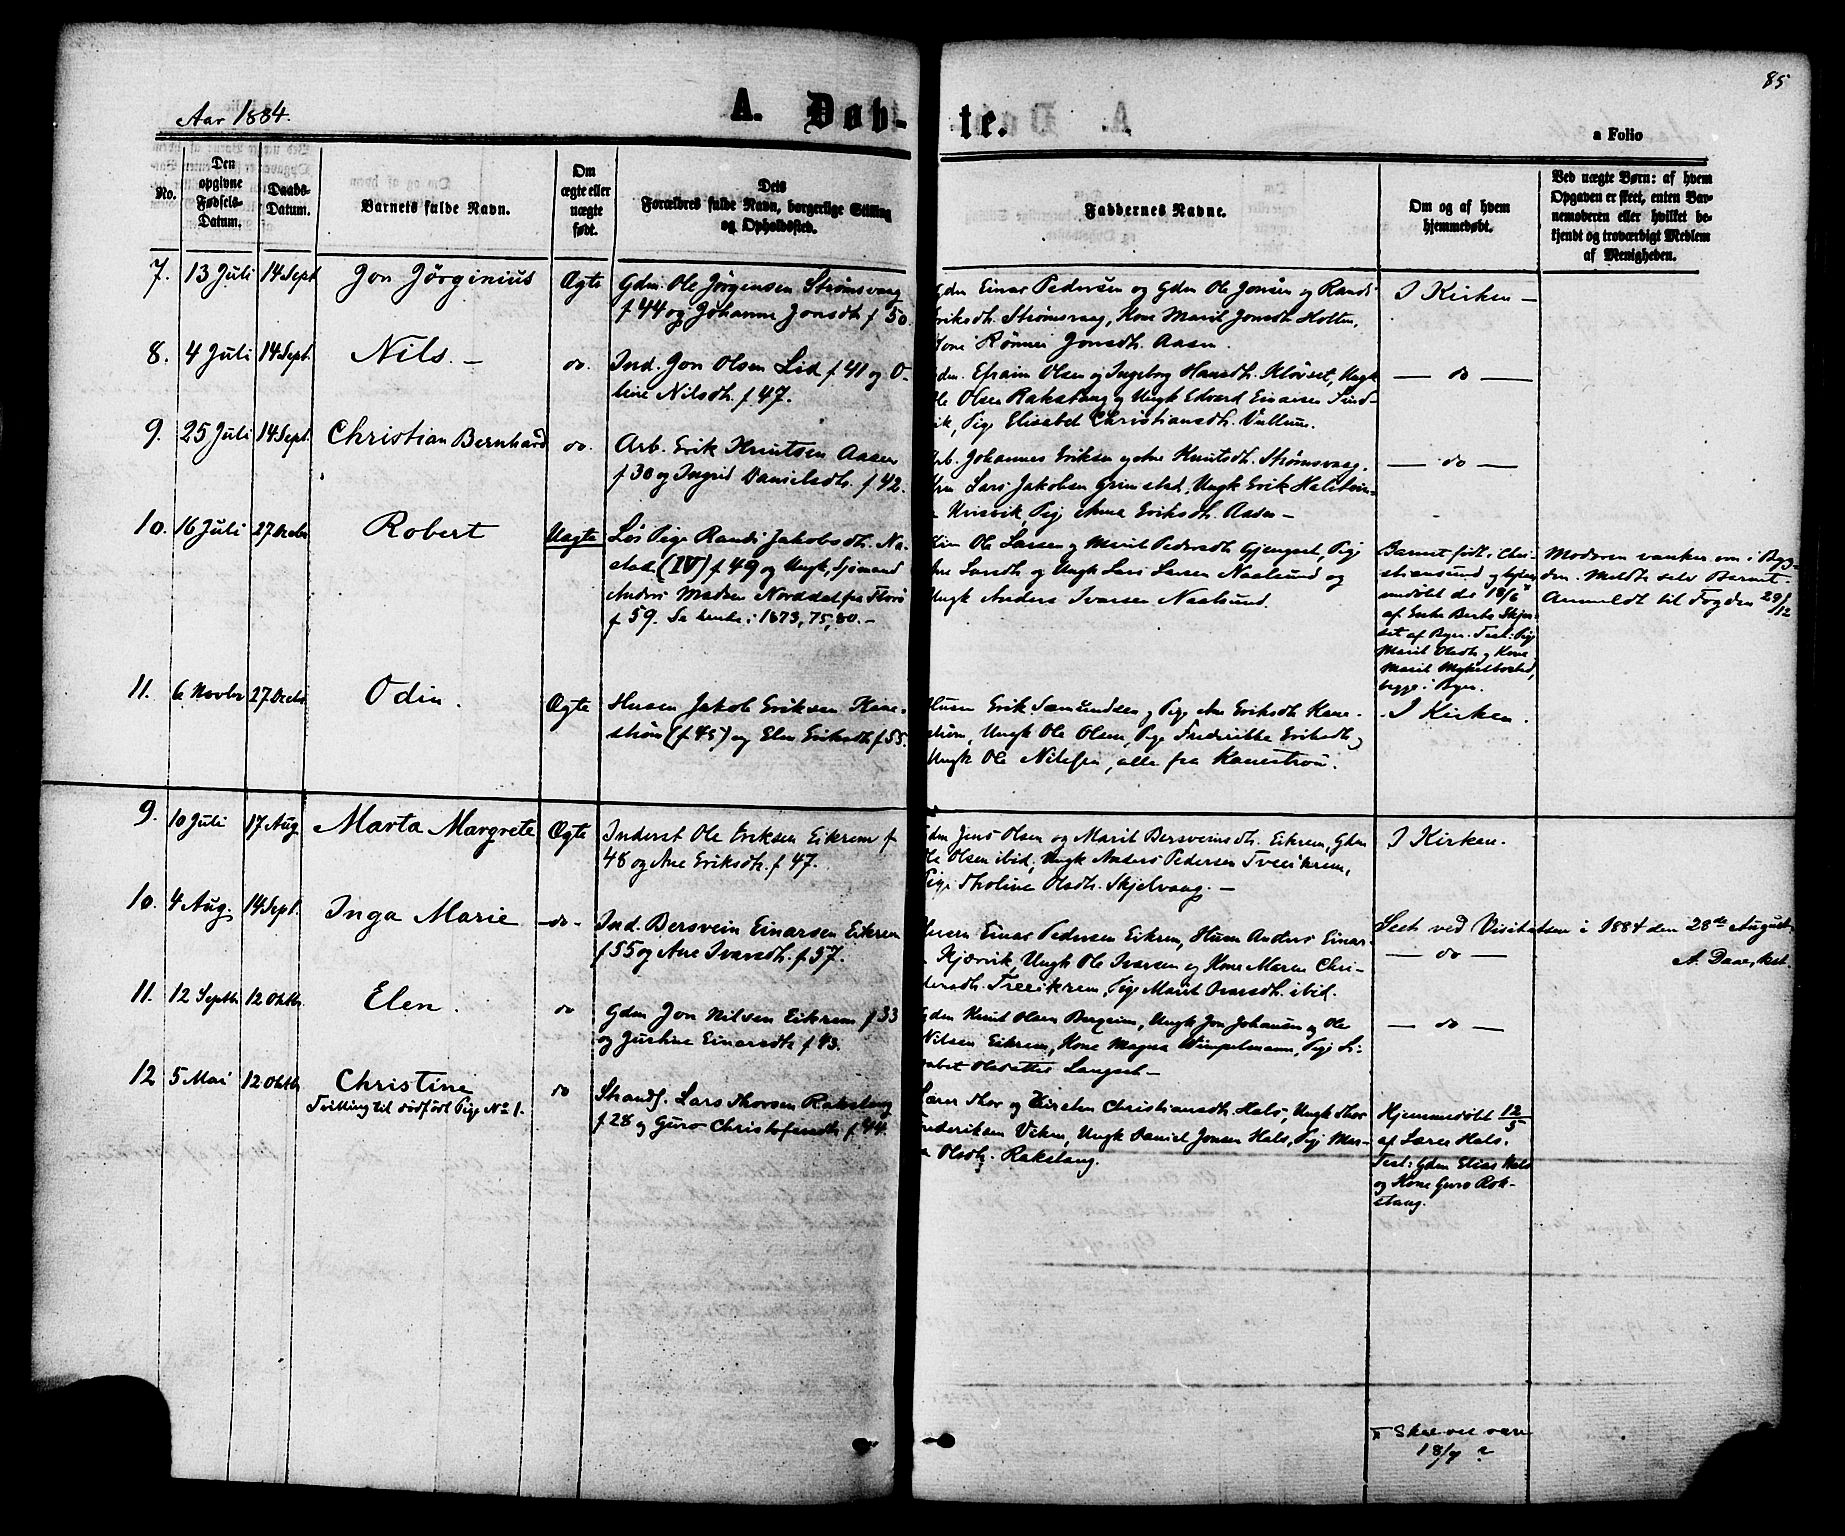 85
Aar 1884.
A. Døb-
te.
a Folio
No.
Den
opgivne
Fødsels-
Datum.
Daabs-
Datum.
Barnets fulde Navn.
Om
ægte eller
uægte
født.
Dets
Forældres fulde Navn, borgerlige Stilling
og Opholdssted.
Faddernes Navne.
Om og af hvem
hjemmedøbt.
Ved uægte Børn: af hvem
Opgaven er skeet, enten Bar-
nemoderen eller hvilket be-
kjendt og troværdigt Medlem
af Menigheden.
7. 13 Juli 14 Sept Jon Jörginius Ægte
Gdm. Ole Jörgensen Strömsvaag
f 44 og Johanne Jonsdh f 50.
Gdm Einar Pedersen og Gdm Ole Jonsen og Randi
Eriksdh. Strömsvaag, Kone Marit Jonsdh Holten,
Kone Rönnei Jonsdh. Aasen.
I Kirken –
8. 4 Juli 14 Sept. Nils. – do.
Ind. Jon Olsen Lid f 41 og O-
line Nilsdh. f 47.
Gdm. Efraim Olsen og Ingeborg Hansdh. Klövset, Ungk
Ole Olsen Rakstang og Ungk Edvard Einarsen Sund-
vik, Pige Elisabet Christiansdh. Vullum.
— do —
9. 25 Juli 14 Sept. Christian Bernhard do.
Arb. Erik Knutsen Aasen
f 30 og Ingrid Danielsdh. f 42.
Arb. Johannes Eriksen og Ane Knutsdh. Strömsvaag.
Lars Jakobsen Grimstad, Ungk Erik Halstein-
Kvisvik, Pig Anne Eriksdh. Aasen –
— do —
10. 16 Juli 27 Decbr Robert Uægte
Lös Pige Randi Jakobsdh. Na-
stad (IV) f 49 og Ungk, Sjömand
Anders Madsen Norddal fra Florö
f 59. Se hende i 1873, 75, 80. –
Ole Larsen og Marit Pedersdh Gjengset, Pige
Ane Larsdh og Ungk Lars Larsen Naalsund og
Ungk Anders Ivarsen Naalsund.
Barnet födt i Chri-
stiansund og hjem-
medöbt der 18/6 ¤
af Enke Berte Skjer-
set af Byen. Test: Pige
Marit Olsdh og Kone
Marit Myklebostad,
begge i Byen.
Moderen vanker om i Byg-
den. Meldte selv Barnet
Anmeldt til Fogden 29/12
11. 6 Novbr 27 Decbr Odin. Ægte
Husm Jakob Eriksen Kane-
ström (f 45) og Elen Eriksdh f 55.
Husm Erik Samundsen og Pige Ane Eriksdh Kane-
ström, Ungk Ole Olsen, Pige Fredrikke Eriksdh og
Ungk Ole Nilsen, alle fra Kaneström.
I Kirken.
9. 10 Juli 17 Aug. Marta Margrete Ægte
Inderst Ole Eriksen Eikrem f
48 og Ane Eriksdh. f 47.
Gdm Jens Olsen og Marit Bersveinsdh. Eikrem, Gdm
Ole Olsen ibid, Ungk Anders Pedersen Tveeikrem,
Pige Tholine Olsdh. Skjelvaag. –
I Kirken.
10. 4 Aug. 14 Sept. Inga Marie – do –
Ind. Bersvein Einarsen Eikrem
f 55 og Ane Ivarsdh. f 57.
Husm Einar Pedersen Eikrem, Husm Anders Einar-
Kjörvik, Ungk Ole Ivarsen og Kone Maren Chri-
Treeikrem, Pige Marit Ivarsdh. ibid.
— do —
Seet ved Visitatsen i 1884 den 28de August.
A. Daae, kst.
11. 12 Septbr 12 Oktbr Elen. do
Gdm Jon Nilsen Eikrem f 33
og Gurine Einarsdh f 43.
Gdm Knut Olsen Bergem, Ungk Jon Johansen og Ole
Nilsen Eikrem, Kone Magna Wimpelmann, Pige Li-
sabet Olsdatter Langset –
— do —
12 5 Mai 12 Oktbr Christine do
Tvilling til dödfödt Pige No 1.
Strands. Lars Thorsen Rakstang
f 28 og Guro Christofersdh f 44.
Lærer Thor og Kirsten Christiansdh. Hals, Ungk Thor
Frederiksen Viken, Ungk Daniel Jonsen Hals, Pige Mar-
Olsdh. Rakstang.
Hjemmedöbt 12/5
af Lærer Hals.
Test: Gdm Elias Hals
og Kone Guro Rak-
stang.
¤ Skal vel være
18/7 ?